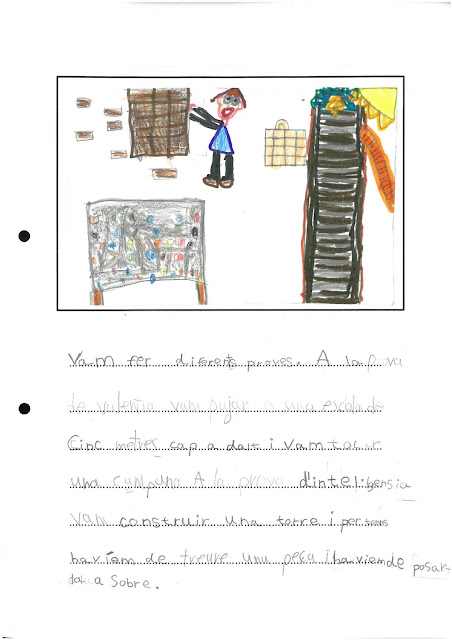 Vam fer diferents proves. A la prova
de valentia vam pujar a una escala de
Cinc metres cap a dalt i vam tocar
una campana A la prova d'inteligensia
vam construir una torre i per torns
havíem de treure una peça i haviem de posar-
a sobre.